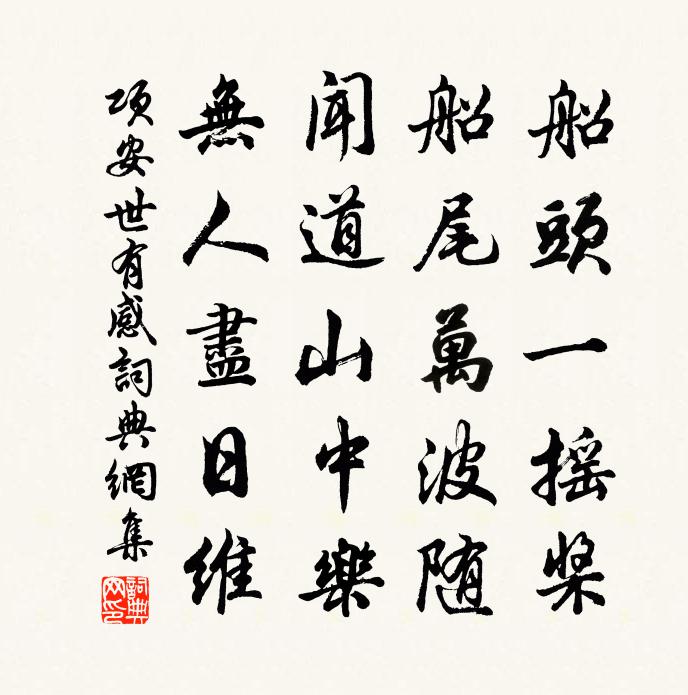 船頭一摇槳
船尾萬波随
聞道山中樂
無人盡日維
項安世有感詞典網集
詞典网印